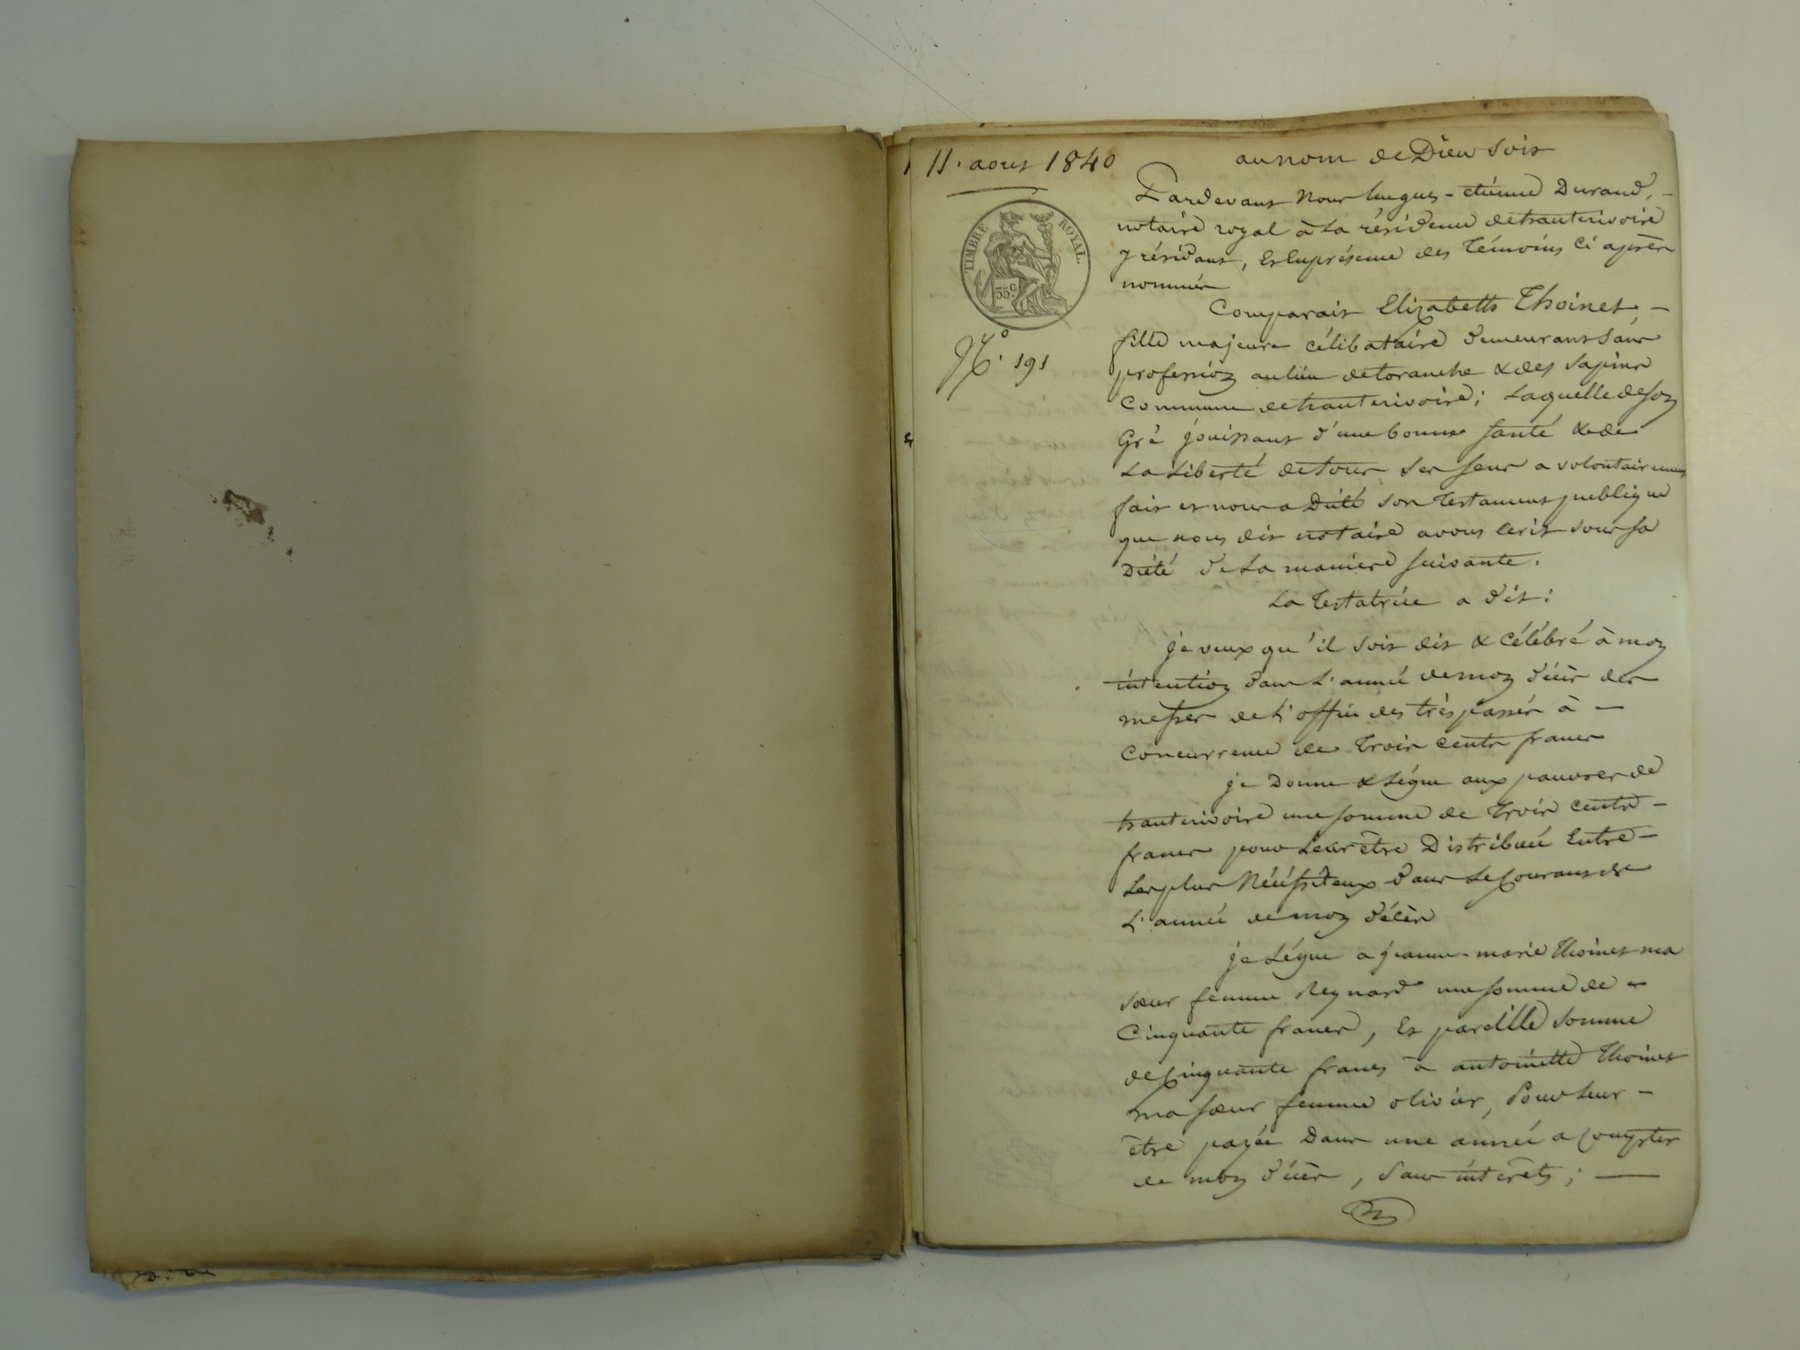 11. aout 1840
au nom de Dieu soit
TIMBRE ROYAL.
35 c
N.° 191
Pardevant Nous hugues-etienne Durand, -
notaire royal à La résidence de hauterivoire
y résidant, Et En présence des témoins Ci après
nommés
Comparait Elizabeth Thoinet -
fille majeure célibataire demeurant sans
profession au lieu de toranche & des sapins
Commune de hauterivoire; Laquelle de son
Gré jouissant d'une bonne santé & de
La Liberté de tous ses sens a volontairement
fait et nous a Dicté son testament publique
que nous dit notaire avons Ecrit sous sa
Dictée de La manière suivante.
La Testatrice a dit:
je veux qu'il soit dit & célébré à mon
intention dans L'année de mon décès des
messes de L'office des trèspassés à -
Concurrence de trois cents francs
je Donne & Lègue aux pauvres de
hauterivoire une somme de trois cents -
francs pour Leur être Distribuée Entre -
Les plus Nécéssiteux dans Le Courant de
L'année de mon décès
je Lègue a jeanne-marie Thoinet ma
sœur femme Reynard une somme de -
Cinquante francs, Et pareille somme
de Cinquante francs à antoinette Thoinet
ma sœur femme olivier, Pour Leur -
être payée Dans une année a Compter
de mon décès, sans intérêts; -